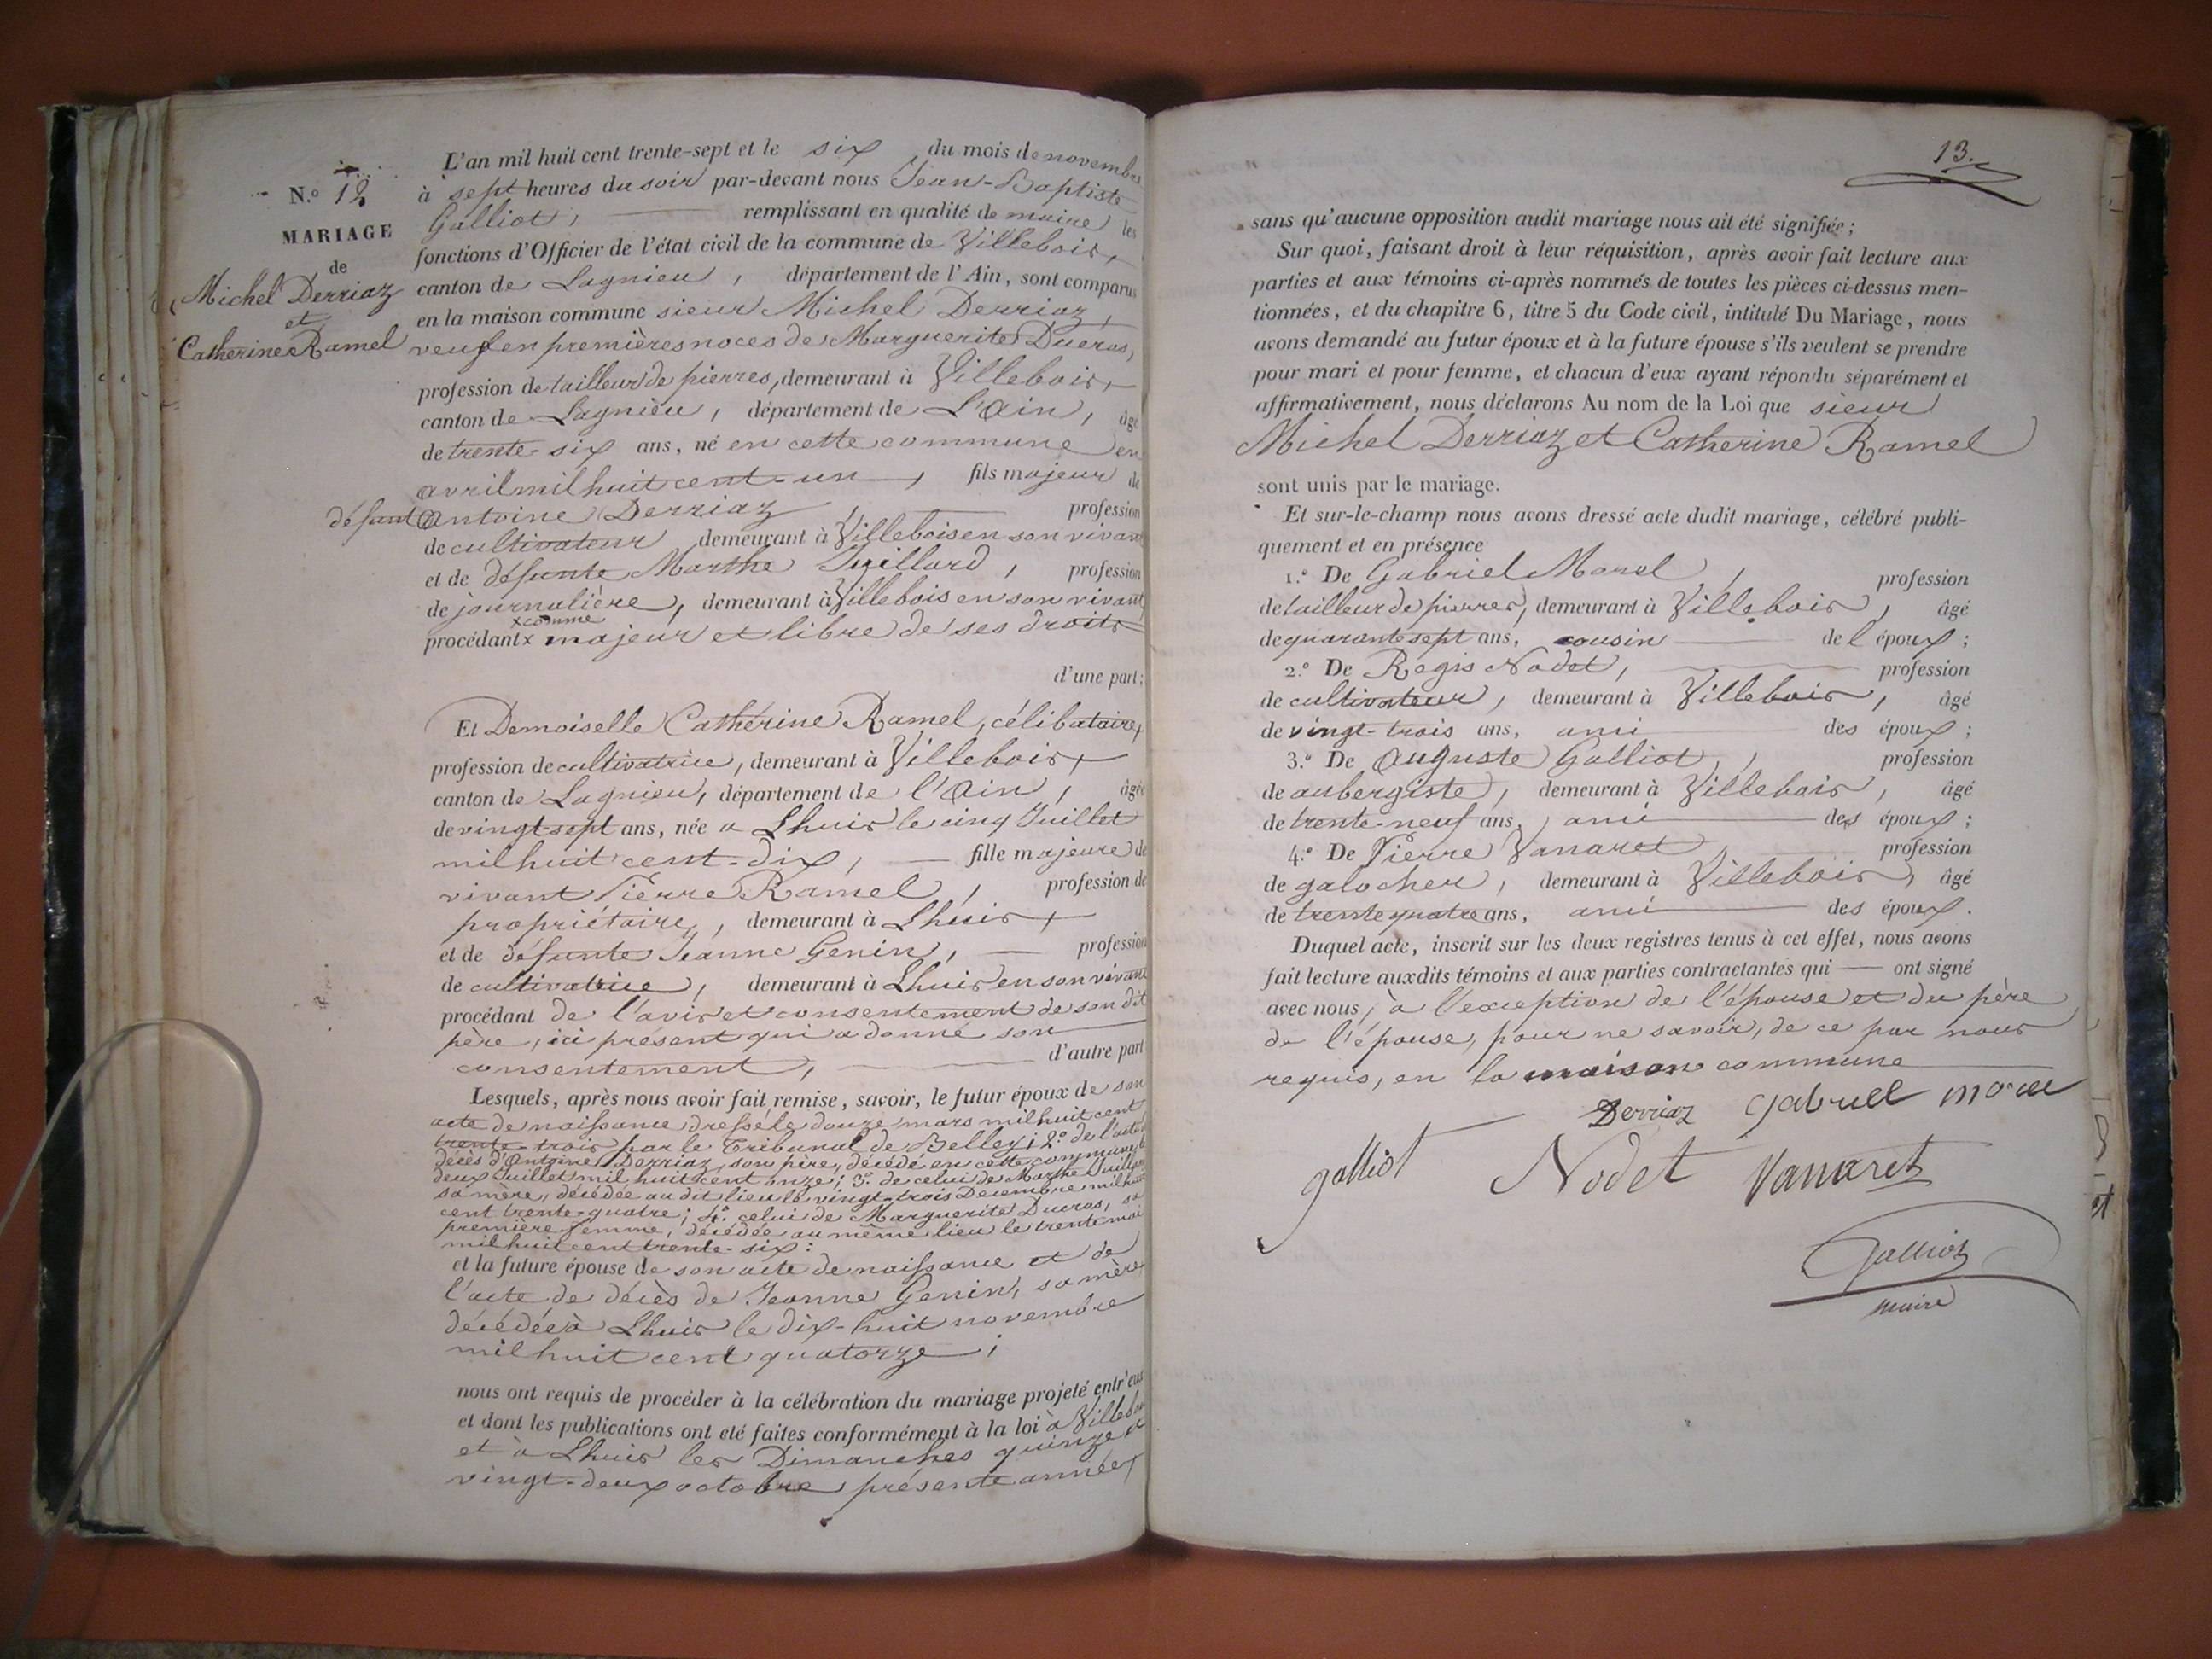 N.o 12
MARIAGE
de
Michel Derriaz
et
Catherine Ramel
L'an mil huit cent trente-sept et le six du mois de novembre
à sept heures du soir par-devant nous Jean-Baptiste
Galliot, remplissant en qualité de maire les
fonctions d'Officier de l'état civil de la commune de Villebois,
canton de Lagnieu, département de l'Ain, sont comparus
en la maison commune sieur Michel Derriaz,
veuf en premières noces de Marguerite Ducros,
profession de tailleur de pierres, demeurant à Villebois,
canton de Lagnieu, département de L'Ain, âgé
de trente-six ans, né en cette commune en
avril mil huit cent-un, fils majeur de
défunt Antoine Derriaz, profession
de cultivateur demeurant à Villebois en son vivant
et de défunte Marthe Juillard, profession
de journalière, demeurant à Villebois en son vivant,
x comme
procédant x majeur et libre de ses droits
d'une part;
Et Demoiselle Cathérine Ramel, célibataire,
profession de cultivatrice, demeurant à Villebois,
canton de Lagnieu, département de l'Ain, âgée
de vingt-sept ans, née a Lhuis le cinq Juillet
mil huit cent-dix, fille majeure de
vivant Pierre Ramel, profession de
propriétaire, demeurant à Lhuis,
et de défunte Jeanne Genin, profession
de cultivatrice, demeurant à Lhuis en son vivant
procédant de l'avis et consentement de son dit
père, ici présent qui a donné son
consentement, d'autre part
Lesquels, après nous avoir fait remise, savoir, le futur époux de son
acte de naissance dressé le douze mars mil huit cent
trente-trois par le Tribunal de Belley; 2.o de l'acte de
décès d'Antoine Derriaz, son père, décédé en cette commune le
deux Juillet mil huit cent onze; 3.o de celui de Marthe Juillard
sa mère, décédée au dit lieu le vingt-trois Decembre mil huit
cent trente-quatre; 4.o celui de Marguerite Ducros, sa
première femme, décédée au même lieu le trente mai
mil huit cent trente-six:
et la future épouse de son acte de naissance et de
l'acte de décès de Jeanne Genin, sa mère,
décédée à Lhuis le dix-huit novembre
mil huit cent quatorze;
nous ont requis de procéder à la célébration du mariage projeté entr'eux
et dont les publications ont été faites conformément à la loi à Villebois
et à Lhuis les Dimanches quinze et
vingt-deux octobre présente année,
13.
sans qu'aucune opposition audit mariage nous ait été signifiée;
Sur quoi, faisant droit à leur réquisition, après avoir fait lecture aux
parties et aux témoins ci-après nommés de toutes les pièces ci-dessus men-
tionnées, et du chapitre 6, titre 5 du Code civil, intitulé Du Mariage, nous
avons demandé au futur époux et à la future épouse s'ils veulent se prendre
pour mari et pour femme, et chacun d'eux ayant répondu séparément et
affirmativement, nous déclarons Au nom de la Loi que sieur
Michel Derriaz et Catherine Ramel
sont unis par le mariage.
Et sur-le-champ nous avons dressé acte dudit mariage, célébré publi-
quement et en présence
1.o De Gabriel Morel, profession
de tailleur de pierres, demeurant à Villebois, âgé
de quarante sept ans, cousin de l'époux;
2.o De Régis Nodet, profession
de cultivateur, demeurant à Villebois, âgé
de vingt-trois ans, ami des époux;
3.o De Auguste Galliot, profession
de aubergiste, demeurant à Villebois, âgé
de trente-neuf ans, ami des époux;
4.o De Pierre Vanaret profession
de galocher, demeurant à Villebois, âgé
de trente quatre ans, ami des époux.
Duquel acte, inscrit sur les deux registres tenus à cet effet, nous avons
fait lecture auxdits témoins et aux parties contractantes qui ont signé
avec nous, à l'exception de l'épouse et du père
de l'épouse, pour ne savoir, de ce par nous
requis, en la maison commune
Derriaz Gabriell Morel
galliot Nodet Vanaret
Galliot
maire